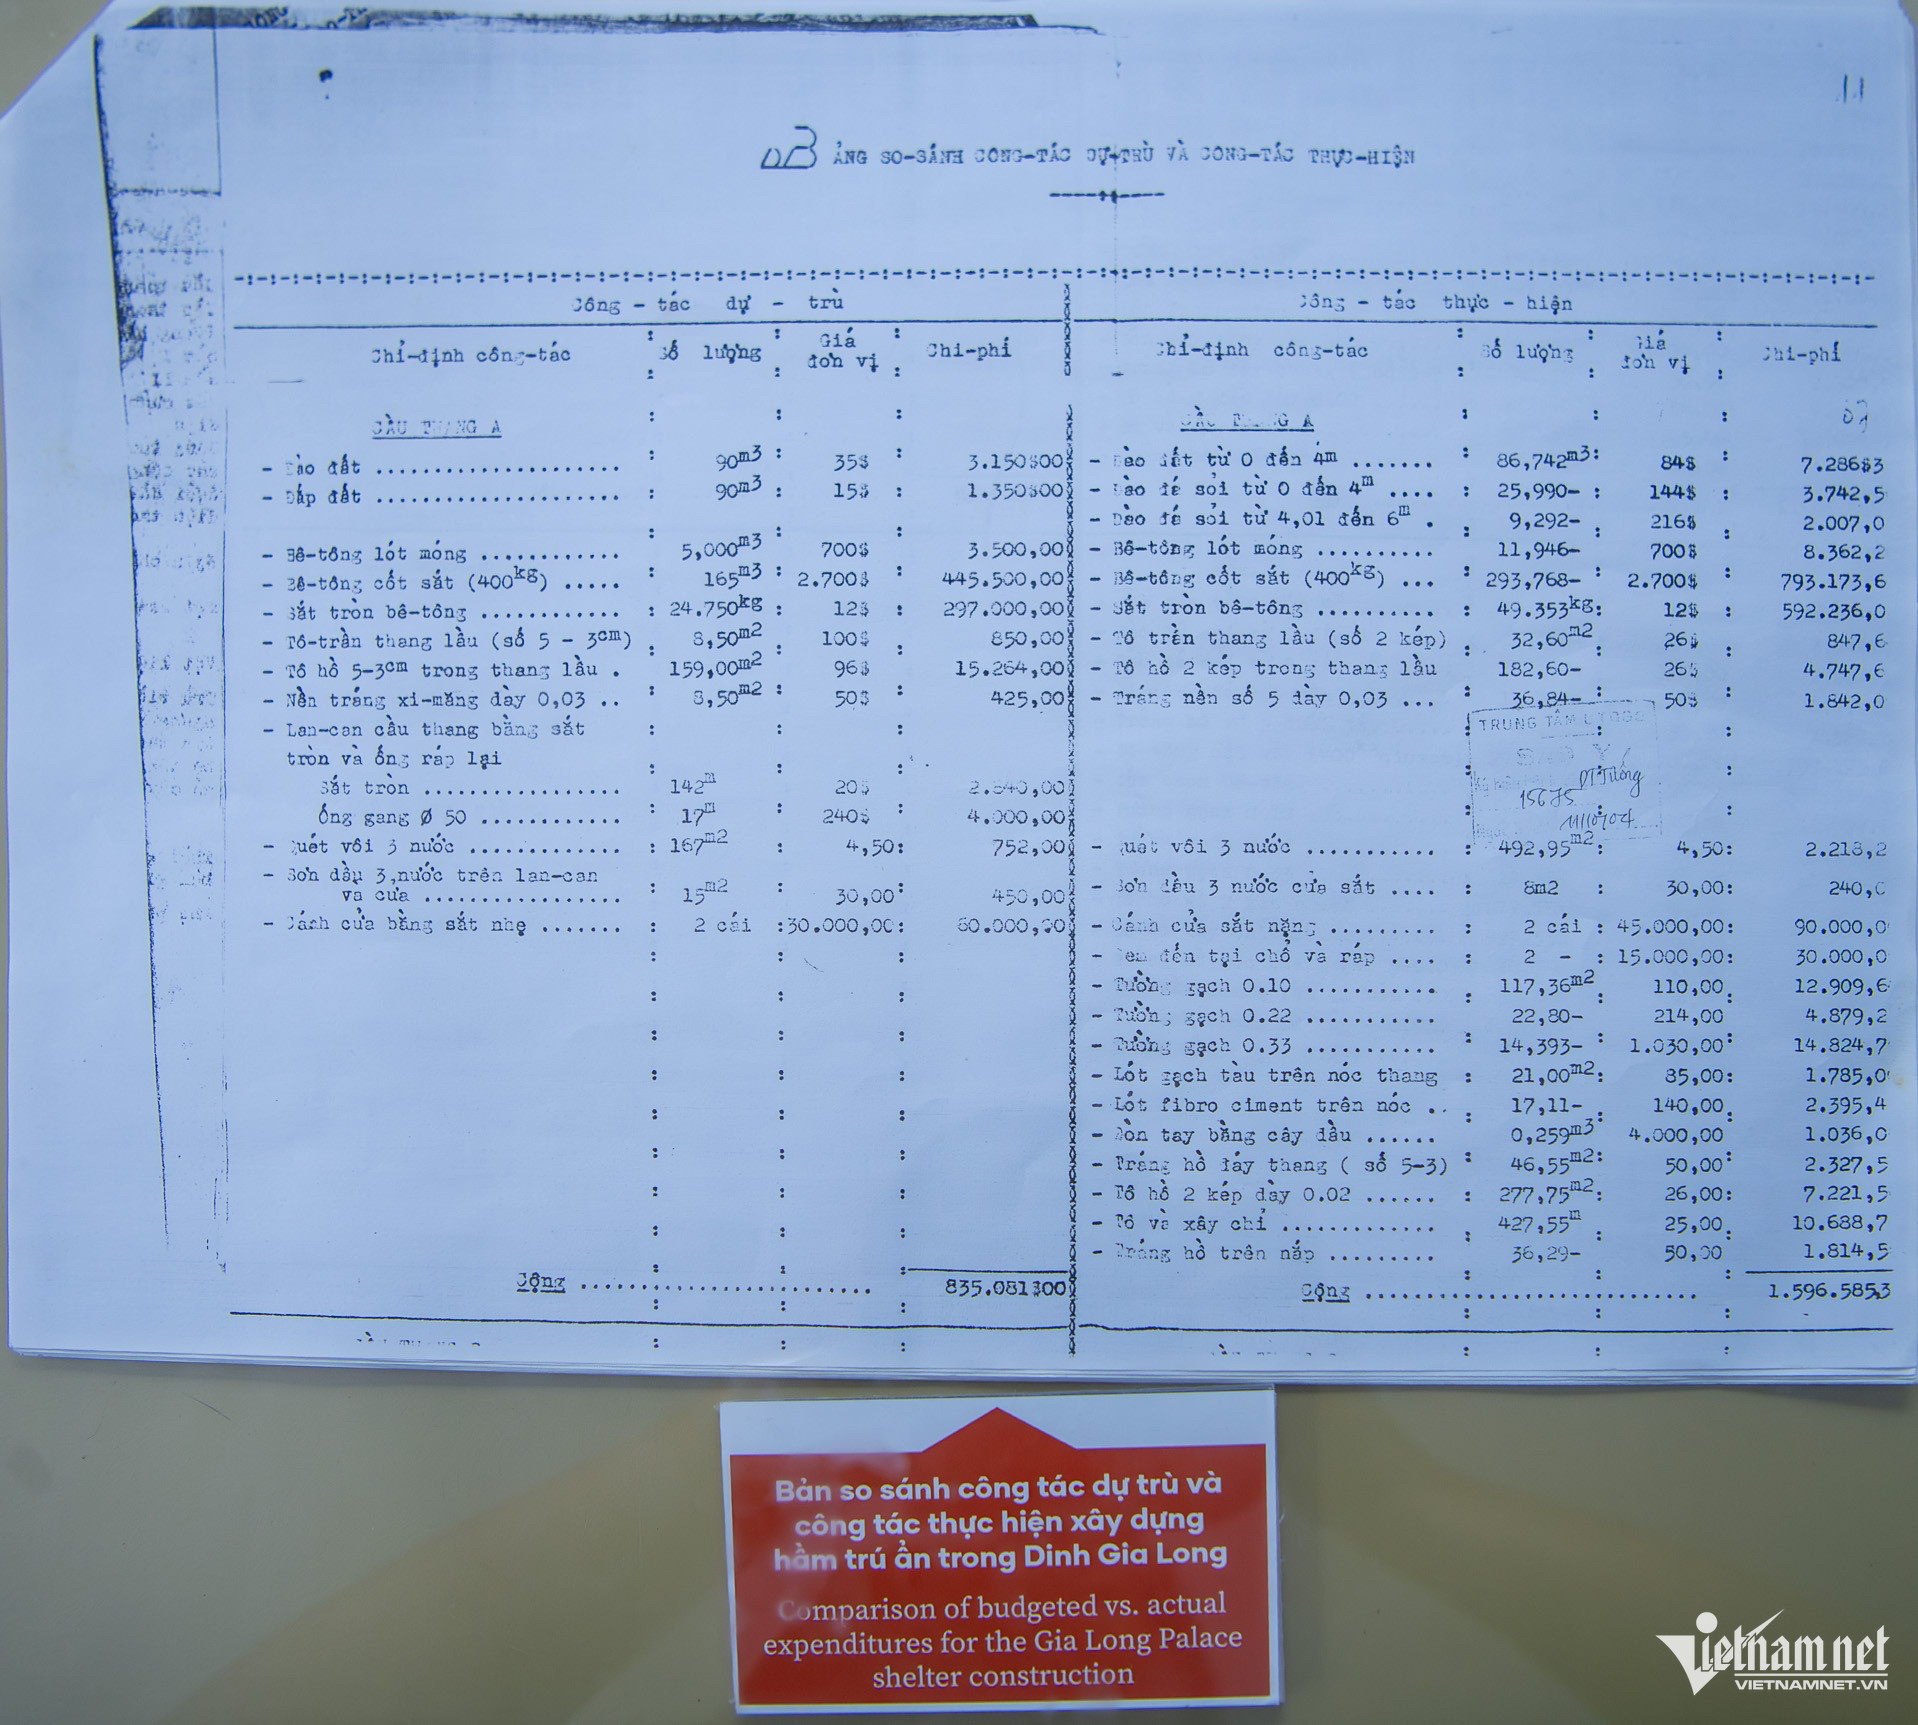 11
BẢNG SO-SÁNH CÔNG-TÁC DỰ-TRÙ VÀ CÔNG-TÁC THỰC-HIỆN
Công - tác dự - trù
Chỉ-định công-tác : Số lượng : Giá đơn vị : Chi-phí
CẦU THANG A
- Đào đất ...................... : 90m3 : 35$ : 3.150$00
- Đắp đất ...................... : 90m3 : 15$ : 1.350$00
- Bê-tông lót móng ............ : 5,000m3 : 700$ : 3.500,00
- Bê-tông cốt sắt (400kg) ..... : 165m3 : 2.700$ : 445.500,00
- Sắt tròn bê-tông ............. : 24.750kg : 12$ : 297.000,00
- Tô-trần thang lầu (số 5 - 3cm) : 8,50m2 : 100$ : 850,00
- Tô hồ 5-3cm trong thang lầu . : 159,00m2 : 96$ : 15.264,00
- Nền tráng xi-măng dày 0,03 .. : 8,50m2 : 50$ : 425,00
- Lan-can cầu thang bằng sắt
tròn và ống ráp lại
Sắt tròn .................. 142m : 20$ : 2.840,00
ống gang Ø 50 ............. : 17m : 240$ : 4.000,00
- Quét vôi 3 nước .............. : 167m2 : 4,50: 752,00
- Sơn dầu 3,nước trên lan-can
và cửa .................. : 15m2 : 30,00: 450,00
- Cánh cửa bằng sắt nhẹ ....... : 2 cái :30.000,00: 60.000,00
Cộng .......................... 835.081$00
Công - tác thực - hiện
Chỉ-định công-tác : Số lượng : Giá đơn vị : Chi-phí
CẦU THANG A
- Đào đất từ 0 đến 4m ....... : 86,742m3: 84$ : 7.286$3
- Đào đá sỏi từ 0 đến 4m .... : 25,990- : 144$ : 3.742,5
- Đào đá sỏi từ 4,01 đến 6m . : 9,292- : 216$ : 2.007,0
- Bê-tông lót móng ........... : 11,946- : 700$ : 8.362,2
- Bê-tông cốt sắt (400kg) ... : 293,768- : 2.700$ : 793.173,6
- Sắt tròn bê-tông ........... : 49.353kg: 12$ : 592.236,0
- Tô trần thang lầu (số 2 kép) : 32,60m2 : 26$ : 847,6
- Tô hồ 2 kép trong thang lầu : 182,60- : 26$ : 4.747,6
- Tráng nền số 5 dày 0,03 ... : 36,84- : 50$ : 1.842,0
TRUNG TÂM
15675
11/10/04
- Quét vôi 3 nước ............ : 492,95m2: 4,50: 2.218,2
- Sơn dầu 3 nước cửa sắt .... : 8m2 : 30,00: 240,0
- Cánh cửa sắt nặng .......... : 2 cái : 45.000,00: 90.000,0
- Đem đến tại chổ và ráp .... : 2 - : 15.000,00: 30.000,0
- Tường gạch 0.10 ............ : 117,36m2 : 110,00 : 12.909,6
- Tường gạch 0.22 ............ 22,80- 214,00 4.879,2
- Tường gạch 0.33 ............ : 14,393- : 1.030,00: 14.824,7
- Lót gạch tàu trên nóc thang : 21,00m2: 85,00: 1.785,0
- Lót fibro ciment trên nóc .. : 17,11- : 140,00 : 2.395,4
- Đòn tay bằng cây dầu ...... : 0,259m3: 4.000,00 1.036,0
- Tráng hồ đáy thang ( số 5-3) : 46,55m2: 50,00: 2.327,5
- Tô hồ 2 kép dày 0.02 ...... : 277,75m2: 26,00: 7.221,5
- Tô và xây chỉ .............. : 427,55m : 25,00 : 10.688,7
- Tráng hồ trên nắp .......... : 36,29- : 50,00 : 1.814,5
Cộng ............................ 1.596.585,3
Bản so sánh công tác dự trù và
công tác thực hiện xây dựng
hầm trú ẩn trong Dinh Gia Long
Comparison of budgeted vs. actual
expenditures for the Gia Long Palace
shelter construction
Vietnamnet
VIETNAMNET.VN